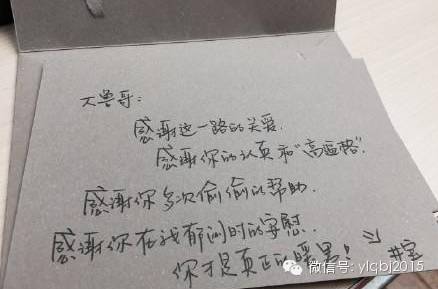 大兽哥:
感谢这一路的关爱.
感谢你的认真和“高逼格”.
感谢你多次偷偷的帮助.
感谢你在我郁闷时的安慰.
你才是真正的暖男!
井宝
微信号: ylqbi2015